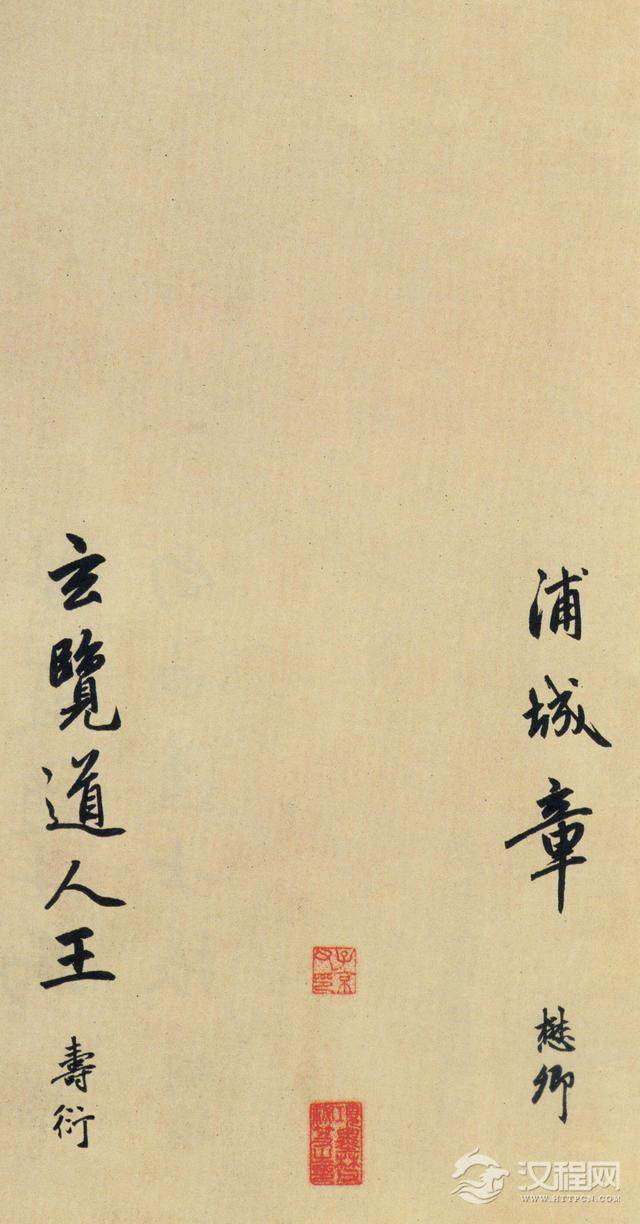 浦城章懋卿
玄覽道人王壽衍
子京父印
汉程网
WWW.HTTPCN.COM